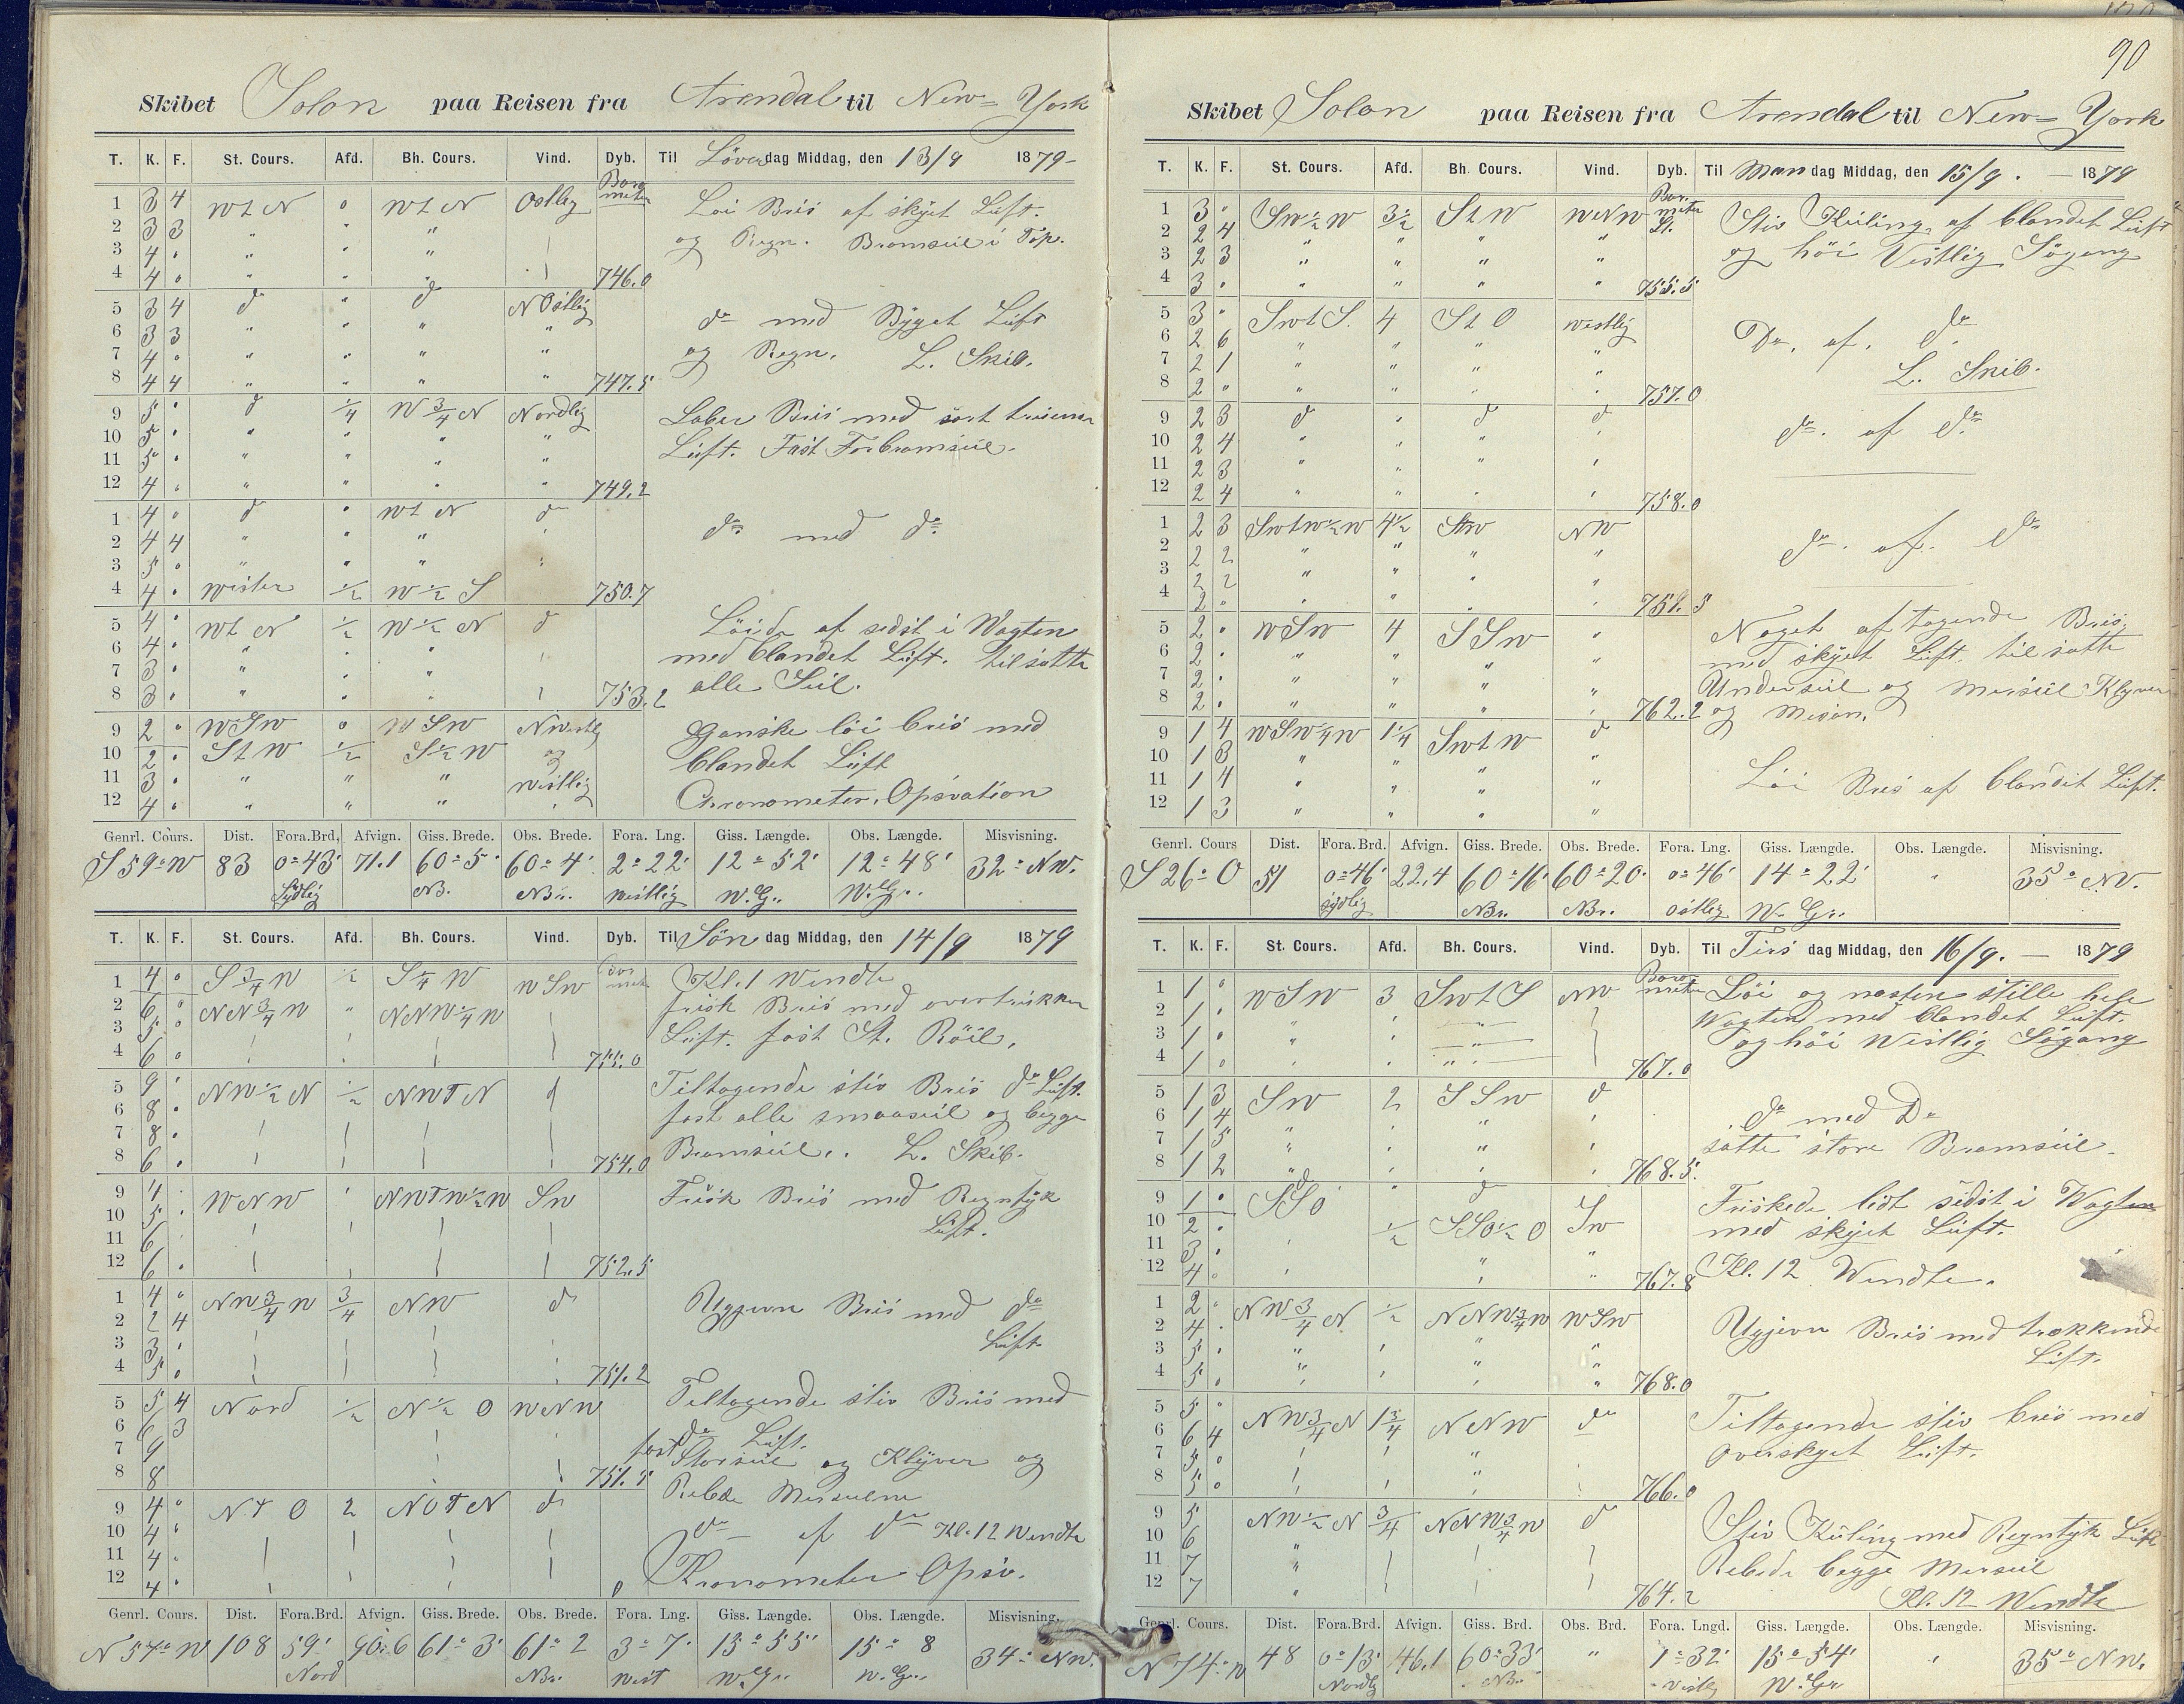 90
Skibet Solon paa Reisen fra Arendal til New= York
T. K. F. St. Cours. Afd. Bh. Cours. Vind. Dyb. Til Löverdag Middag, den 13/9 1879-
Barometer
1 3 4 Wt N 0 Wt N Ostlig Löi Bris af skyet Luft.
2 3 3 " " " og Regn. Bramseil i Top.
3 4 " " " "
4 4 " " " " 746.0
5 3 4 do " do NOstlig do med Byget Luft
6 3 3 " " " " og Regn. L. Skib.
7 4 " " " "
8 4 4 " " " " 747.5
9 5 do 1/4 W 3/4 N Nordlig Laber Bris med
10 5 " " " " Luft. Fast Forbramseil.
11 5 " " " "
12 4 " " " " 749.2
1 4 do Wt N do do med do
2 4 4 " " "
3 5 " " "
4 4 Wester 1/2 W 1/2 S 750.7
5 4 Wt N 1/2 W 1/2 N do Löide af sidst i Wagten
6 4 " " " med blandet Luft. tilsatte
7 3 " " " alle Seil.
8 3 " " " 753.2
9 2 WSW 0 WSW NWestlig Ganske löi bris med
10 2 St W 1/2 S 1/2 W og blandet Luft
11 3 " " " Westlig
12 4 " " " Chronometer. Opsvation
Genrl. Cours. Dist. Fora.Brd, Afvign. Giss. Brede. Obs. Brede. Fora. Lng. Giss. Længde. Obs. Længde. Misvisning.
S 59° W 83 0° 43' 71.1 60° 5' 60° 4' 2° 22' 12° 52' 12° 48' 32° NW.
Sydlig NB. NBr. Westlig W.Gr. W.Gr.
T. K. F. St. Cours. Afd. Bh. Cours. Vind. Dyb. Til Söndag Middag, den 14/9 1879
Barometer
1 4 S 3/4 W 1/2 S 1/4 W WSW Kl. 1 Wendte
2 6 NNW 3/4 W " NNW 1/4 W frisk Bris med overtrukken
3 5 Luft. fast St. Röil.
4 6 755.0
5 9 NW 1/2 N 1/2 NWTN do Tiltagende stiv Bris do Luft.
6 8 fast alle smaaseil og begge
7 8 Bramseil. L. Skib.
8 6 754.0
9 4 WNW NWTW 1/2 W SW Frisk Bris med Regntyk
10 5 Luft.
11 6
12 6 752.5
1 4 NW 3/4 W 3/4 NW do Ugjevn Bris med do
2 2 4 Luft.
3 3
4 5 751.2
5 5 4 Nord 1/2 N 1/2 O WNW Tiltagende stiv Bris med
6 6 3 do Luft.
7 9 fast Storseil og Klyver og
8 8 751.5 Rebede Merseilene
9 4 NTO 2 NOTN do do af do Kl. 12 Wendte
10 4
11 4 Kronometer Opsv.
12 4
Genrl. Cours. Dist. Fora.Brd. Afvign. Giss. Brede. Obs. Brede. Fora. Lng. Giss. Længde. Obs. Længde. Misvisning.
N 57° W 108 59' 90.6 61° 3' 61° 2 3° 7' 15° 55' 15° 8 34° NW.
Nord NBr. West W.Gr. W.Gr.
Skibet Solon paa Reisen fra Arendal til New= York
T. K. F. St. Cours. Afd. Bh. Cours. Vind. Dyb. Til Mandag Middag, den 15/9. 1879
Barometer St.
1 3 SW 1/2 W 3 1/2 St W WNW Stiv Kuling af blandet Luft
2 2 4 " " " " og höi Vestlig Sögang
3 2 3 " " " "
4 3 " " " " 755.5
5 3 SWtS. 4 St O Westlig Do. af. do
6 2 6 " " " " L. Skib.
7 2 1 " " " "
8 2 " " " " 757.0
9 2 3 do " do do do. af do
10 2 4 " " "
11 2 3 " " "
12 2 4 " " " 758.0
1 2 3 SWtW 1/2 W 4 1/2 StW NW do. af. do
2 2 2 " " " "
3 2 2 " " " "
4 2 " " " " 759.5
5 2 WSW 4 SSW " Noget af tagende Bris.
6 2 " " " " med skyet Luft. tilsatte
7 2 " " " " Underseil og Merseil. Klyver
8 2 " " " " 762.2 og Mesan.
9 1 4 WSW 1/4 W 1 1/4 SWtW do
10 1 3 " " " "
11 1 4 " " " " Löi Bris af blandet Luft.
12 1 3 " " " "
Genrl. Cours Dist. Fora.Brd. Afvign. Giss. Brede. Obs. Brede. Fora. Lng. Giss. Længde. Obs. Længde. Misvisning.
S 26° O 51 0° 46' 22.4 60° 16' 60° 20' 0° 46' 14° 22' " 35° NV.
sydlig NBr. NBr. Ostlig W. Gr.
T. K. F. St. Cours. Afd. Bh. Cours. Vind. Dyb. Til Tirsdag Middag, den 16/9. 1879
Barometer
1 1 WSW 3 SWtS NW Löi og næsten stille hele
2 1 " " " Wagten med blandet Luft.
3 1 " " " og höi Westlig Sögang
4 1 " " " 767.0
5 1 3 SW 2 SSW do do med Do
6 1 4 " " " " satte store Bramseil.
7 1 5 " " " "
8 1 2 " " " " 768.5
9 1 SSO " do SW Friskede lidt sidst i Wagten
10 2 1/2 SSO 1/2 O med skyet Luft.
11 3 " " "
12 4 " " " 767.8 Kl. 12 Wendte.
1 2 NW 3/4 N 1/2 NNW 3/4 W WSW Ugjevn Bris med trækkende
2 4 Luft.
3 5 " " " "
4 5 " " " " 768.0
5 5 NW 3/4 N 1 3/4 NNW do Tiltagende stiv bris med
6 6 4 overskyet Luft.
7 5 "
8 5 " 766.0
9 5 NW 1/2 N 3/4 NNW 3/4 W do Stiv Kuling med Regntyk Luft
10 6 " Rebede begge Merseil
11 7 "
12 7 " 764.2 Kl. 12 Wendte
Genrl. Cours. Dist. Fora.Brd. Afvign. Giss. Brd. Obs. Brd. Fora. Lngd. Giss. Længde. Obs. Længde. Misvisning.
N 74° W 48 0° 13' 46.1 60° 33' " 1° 32' 15° 54' " 35° NW.
Nordlg NBr Vestlg W. Gr.